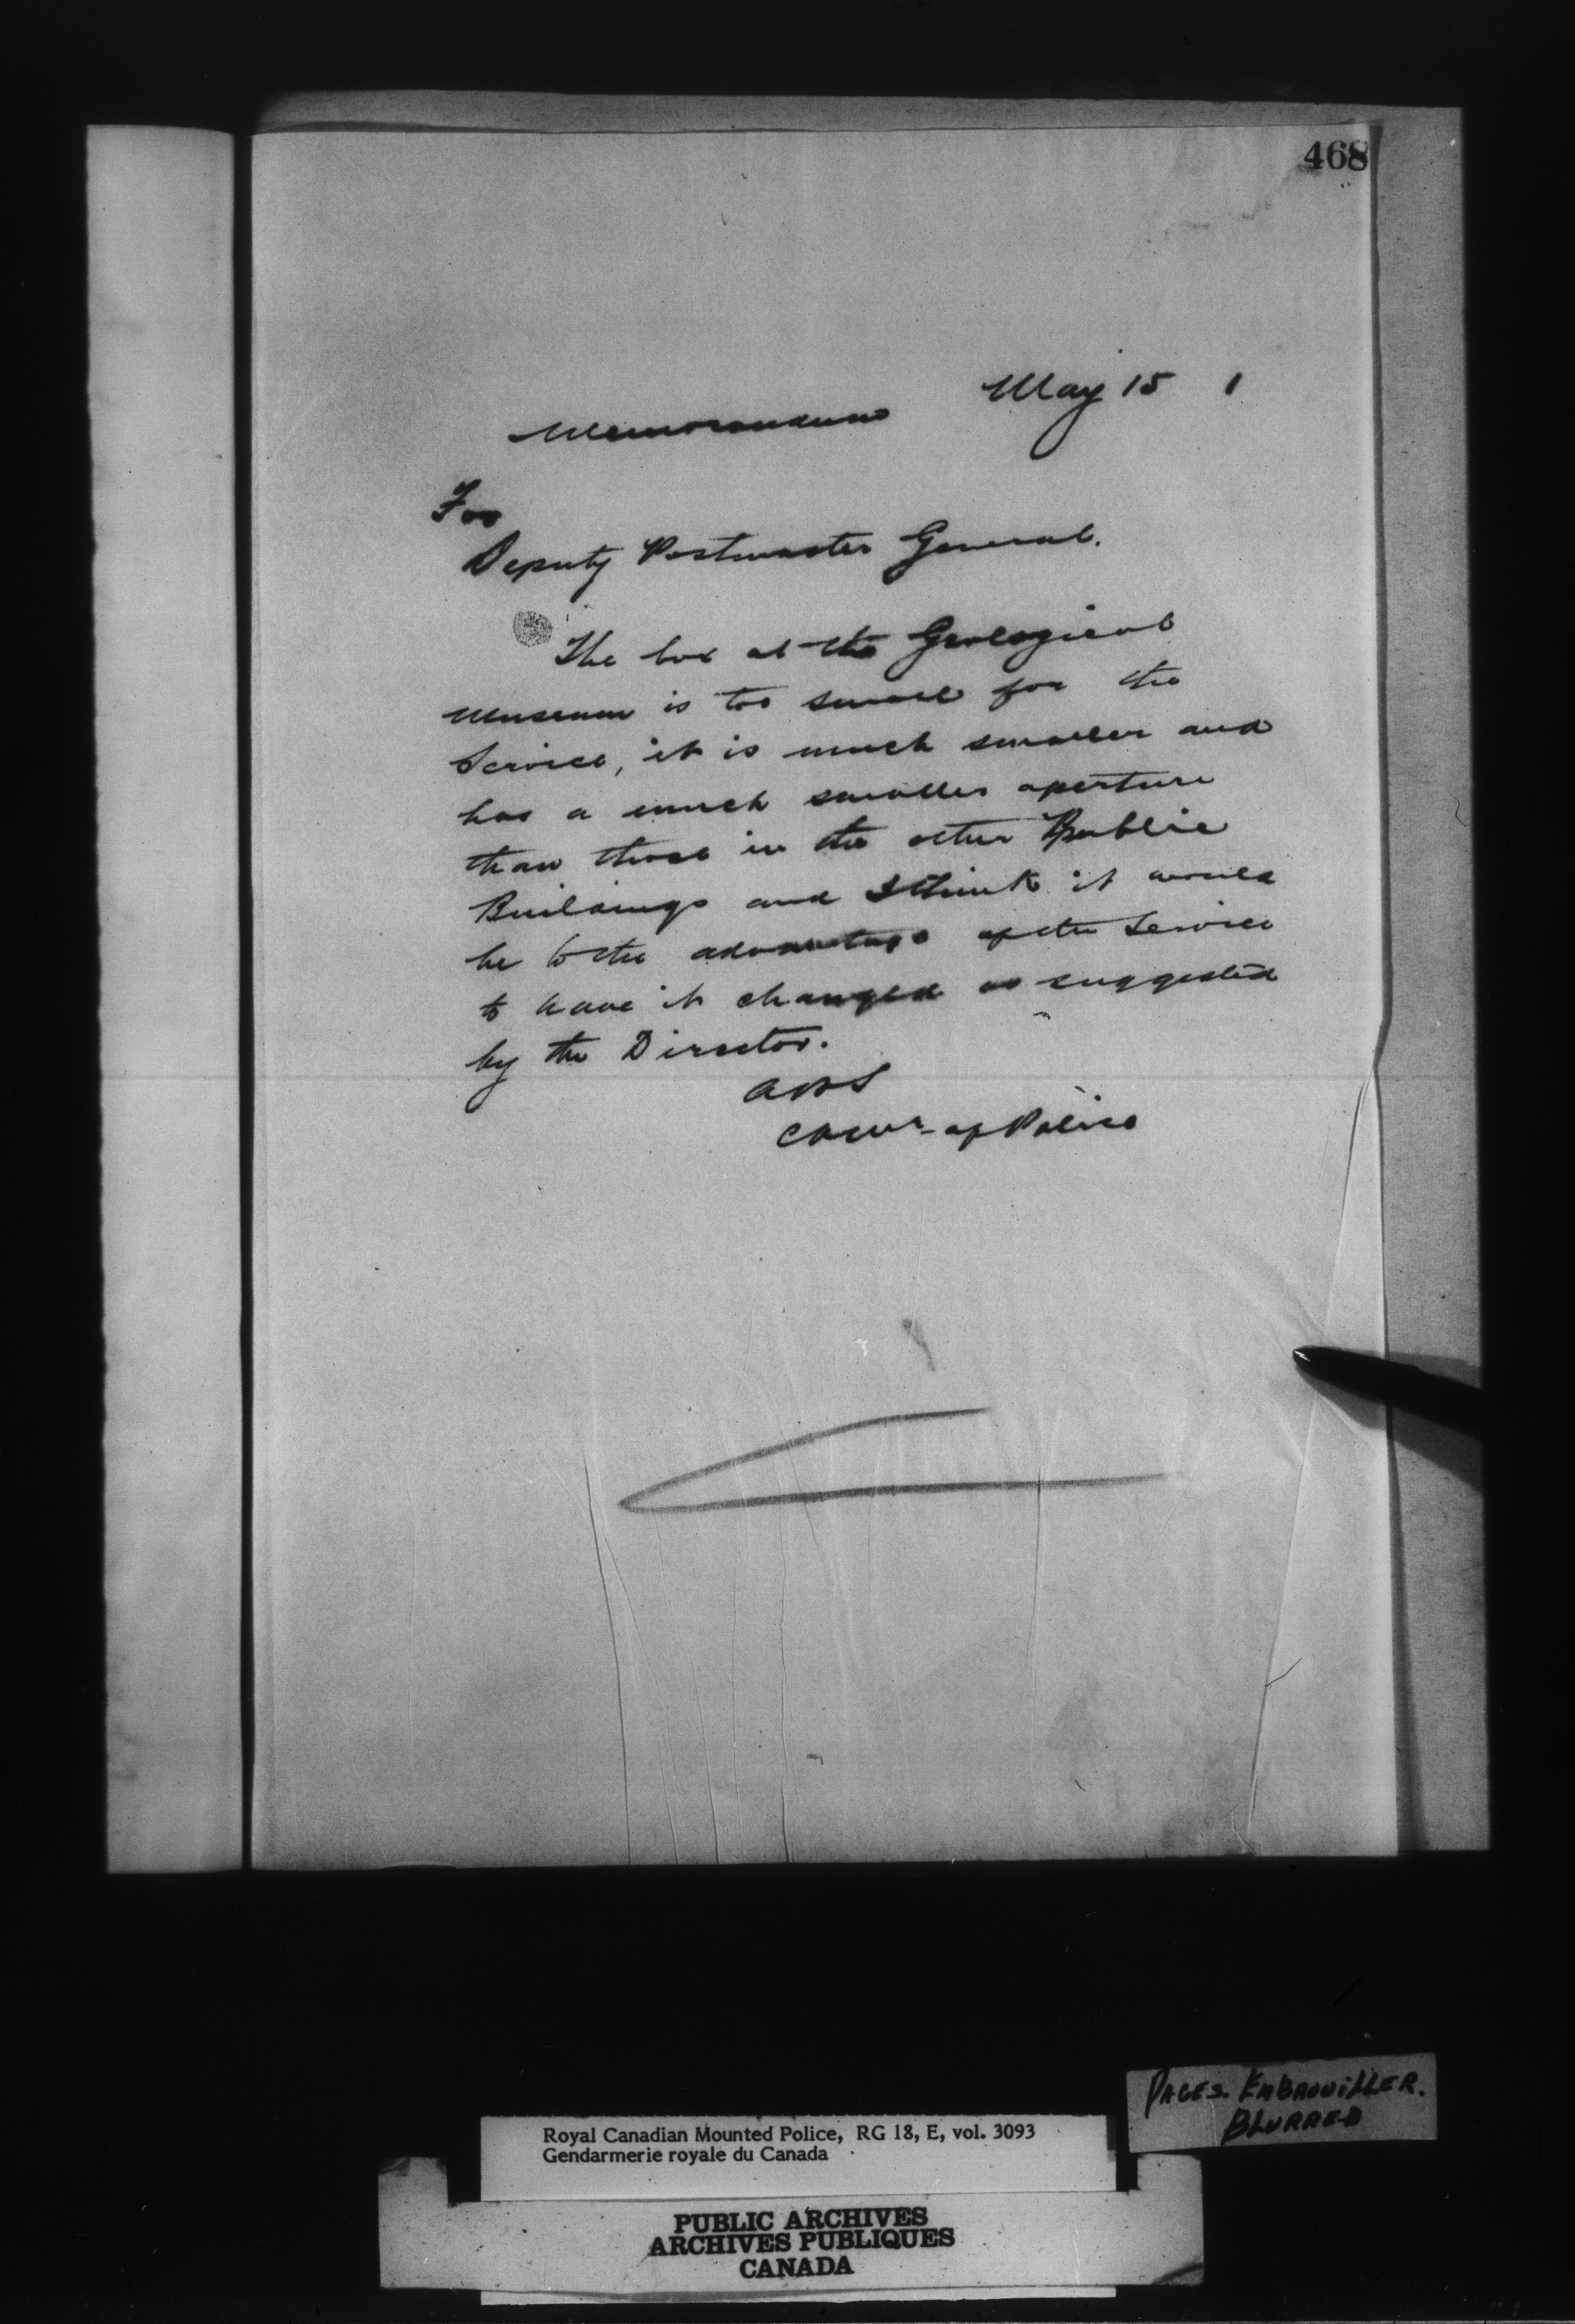 468
May 15 1
Memorandum
For
Deputy Postmaster General.
The box at the Geological
Museum is too small for the
Service, it is much smaller and
has a much smaller aperture
than those in the other Public
Buildings and I think it would
be to the advantage of the Service
to have it changed as suggested
by the Director.
Comr. of Police
PAGES. EMBROUILLER.
BLURRED
Royal Canadian Mounted Police, RG 18, E, vol. 3093
Gendarmerie royale du Canada
PUBLIC ARCHIVES
ARCHIVES PUBLIQUES
CANADA